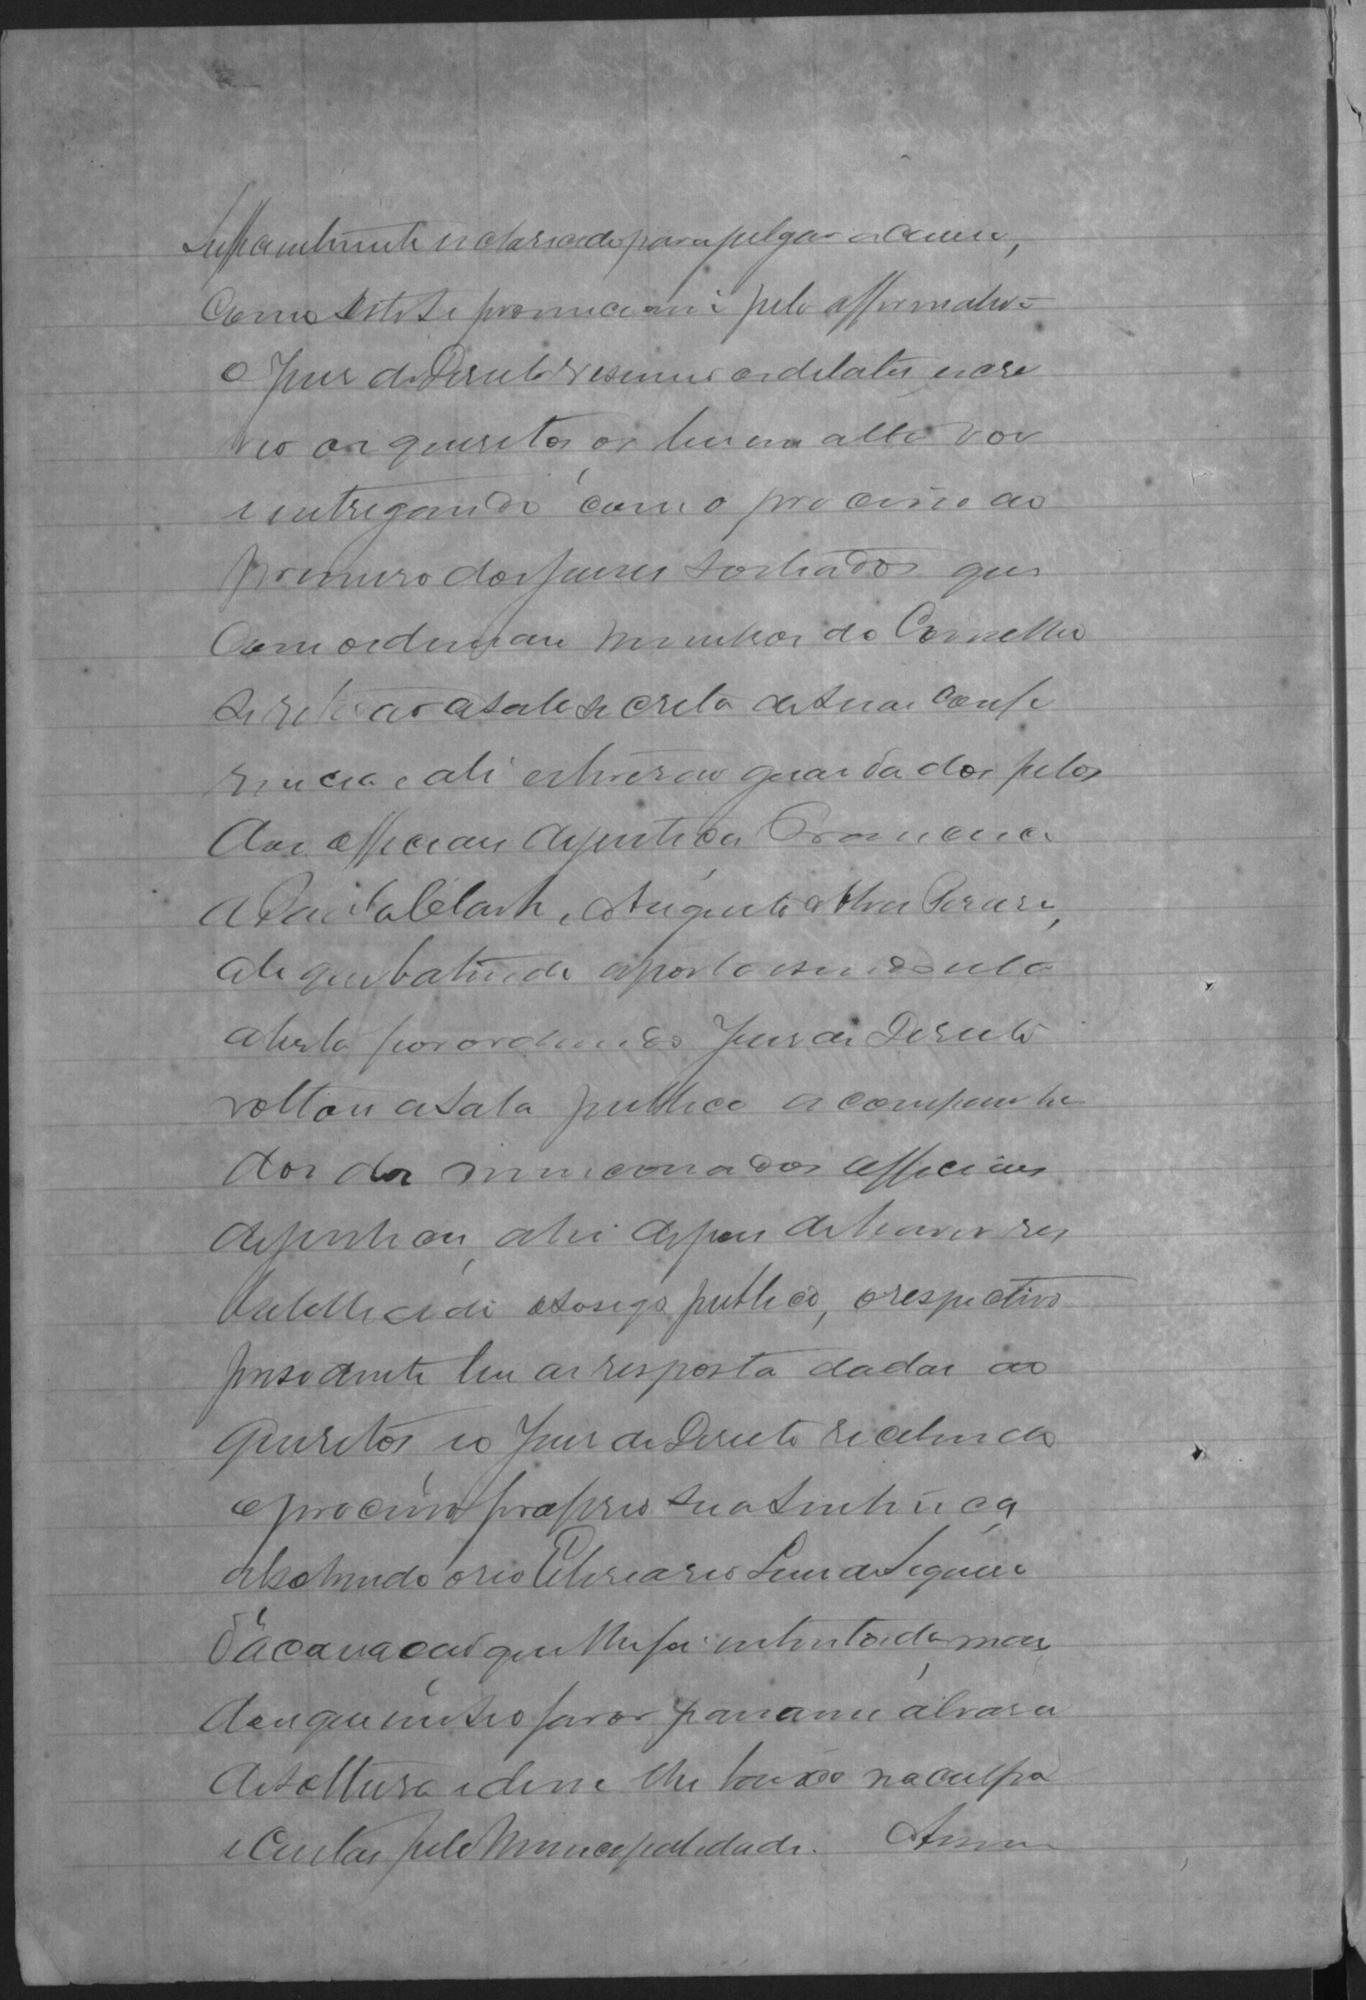 Sufficientemente esclarecido para julgar a causa,
Como este se pronunciou pela affirmativa
o Juiz de Direito resumio os debates escre
veo os quesitos os leu em alta voz
e entregando com o processo ao
primeiro dos Juizes sorteados que
com os demais membros do Conselho
se retirão a sala secreta de suas confe
rencias e ali estiverão guardados pelos
dois officiaes de justiça
e Augusto Alves
ate que batendo a porta esendo ella
aberta por ordem do Juiz de Direito
voltou a sala publica acompanha
dos dos mencionados officiaes
de justiça, ahi depois de haver res
tabellecido o sosego publico, o respectivo
presidente leu as resposta dadas ao
quesitos eo Juiz de Direito recebendo
o processo proferio sua sentença
absolvendo o reo Luiz de Siqueira
da acusação que lhe foi intentada, man
dou que em seo favor passasse alvara
de soltura e desse lhe baixa na culpa
e Custas pela Municipalidade.